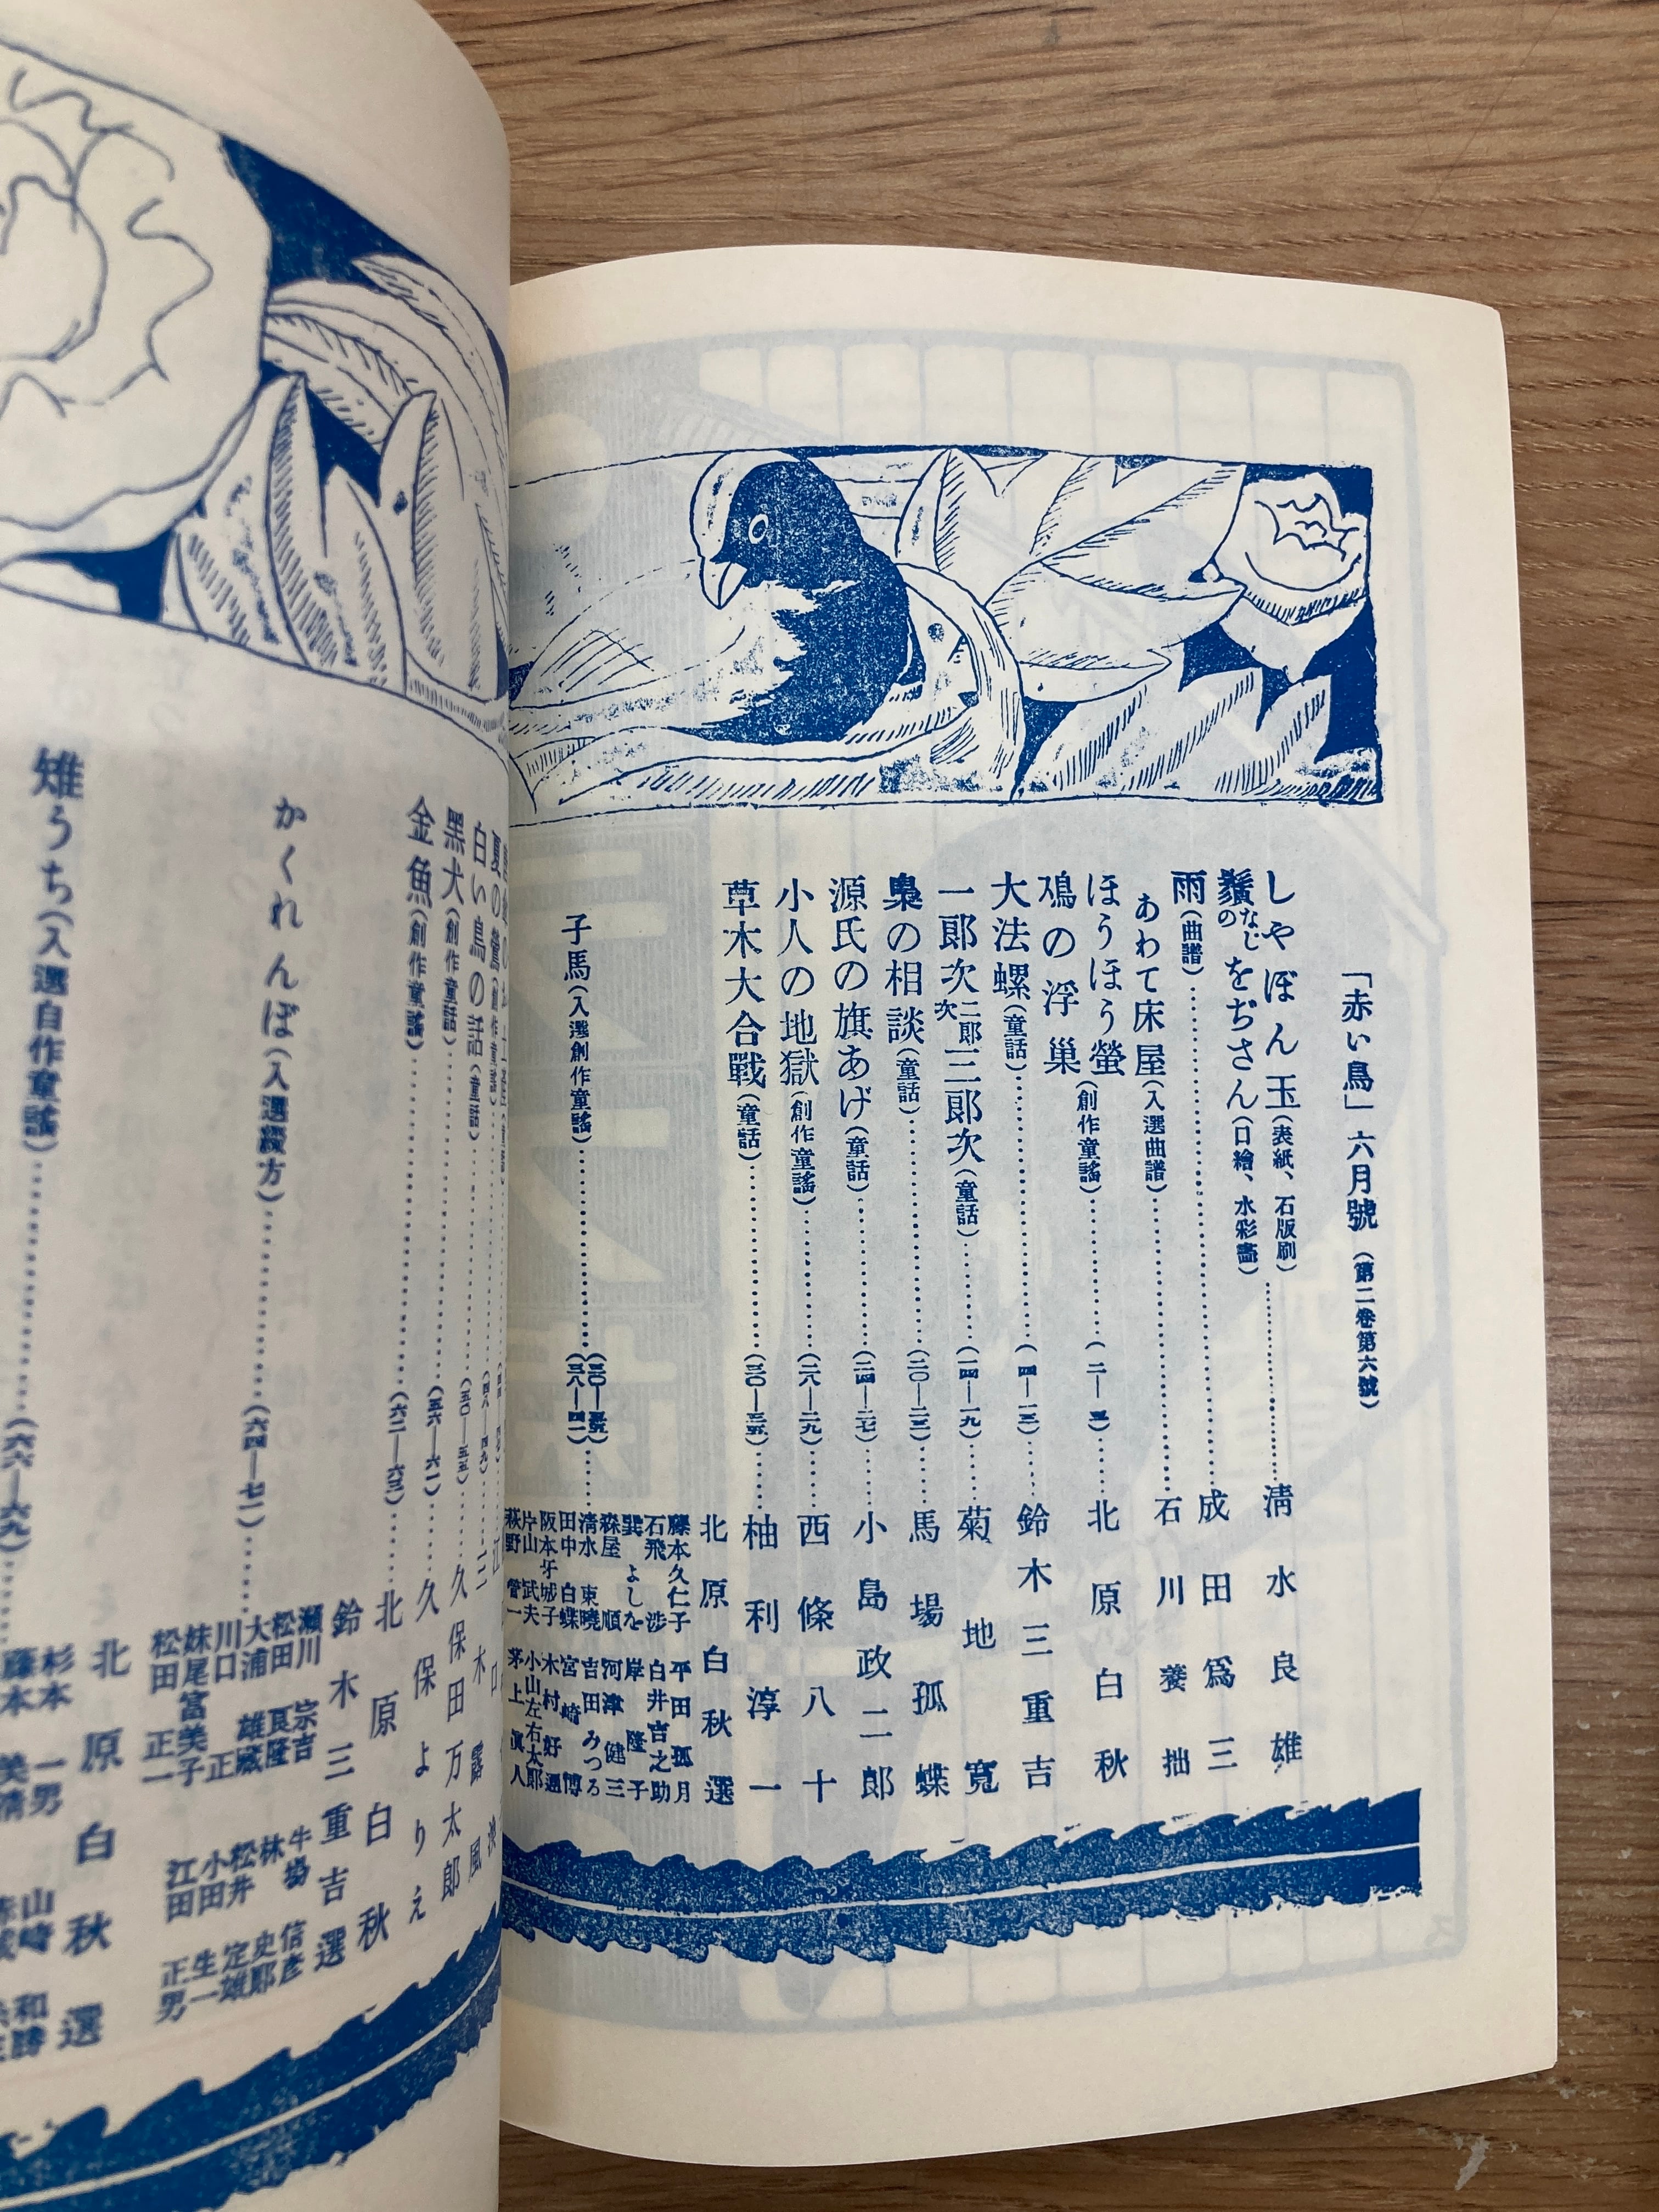 「赤い鳥」六月號（第二卷第六號）
しやぼん玉（表紙、石版刷）…………清水良雄
鬚のなしをぢさん（口繪、水彩畵）
雨（曲譜）…………成田爲三
あわて床屋（入選曲譜）…………石川養拙
ほうほう螢（創作童謠）…………（二—三）……北原白秋
鳰の浮巢
大法螺（童話）…………（四—一三）……鈴木三重吉
一郎次二郎次三郎次（童話）…………（一四—一九）……菊地寬
梟の相談（童話）…………（二〇—二三）……馬場孤蝶
源氏の旗あげ（童話）…………（二四—二七）……小島政二郎
小人の地獄（創作童謠）…………（二八—二九）……西條八十
草木大合戰（童話）…………（三〇—三五）……柚利淳一
子馬（入選創作童謠）…………（三八—四一）……北原白秋選
藤本久仁子　平田孤月
石飛渉　白井吉之助
巽よしを　岸隆子
森屋順　河津健三
淸水東曉　吉田みつろ
田中白蝶　宮崎博
阪本牙城子　木村好週
片山武夫　小山左右太郎
萩野管一　茅上眞人
白い鳥の話（童話）…………（五〇—五五）……久保田万太郎
黑犬（創作童話）…………（五六—六一）……久保よりえ
金魚（創作童謠）…………（六二—六三）……北原白秋
かくれんぼ（入選綴方）…………（六四—七一）……鈴木三重吉選
瀨川宗吉　牛島信彥
松田良隆　林史郎
大浦雄藏　松井定雄
川口正　小田生一
妹尾富美子　江田正男
松田正一
雉うち（入選自作童謠）…………（六六—六九）……北原白秋選
杉本一男　山崎和勝
藤本美淸